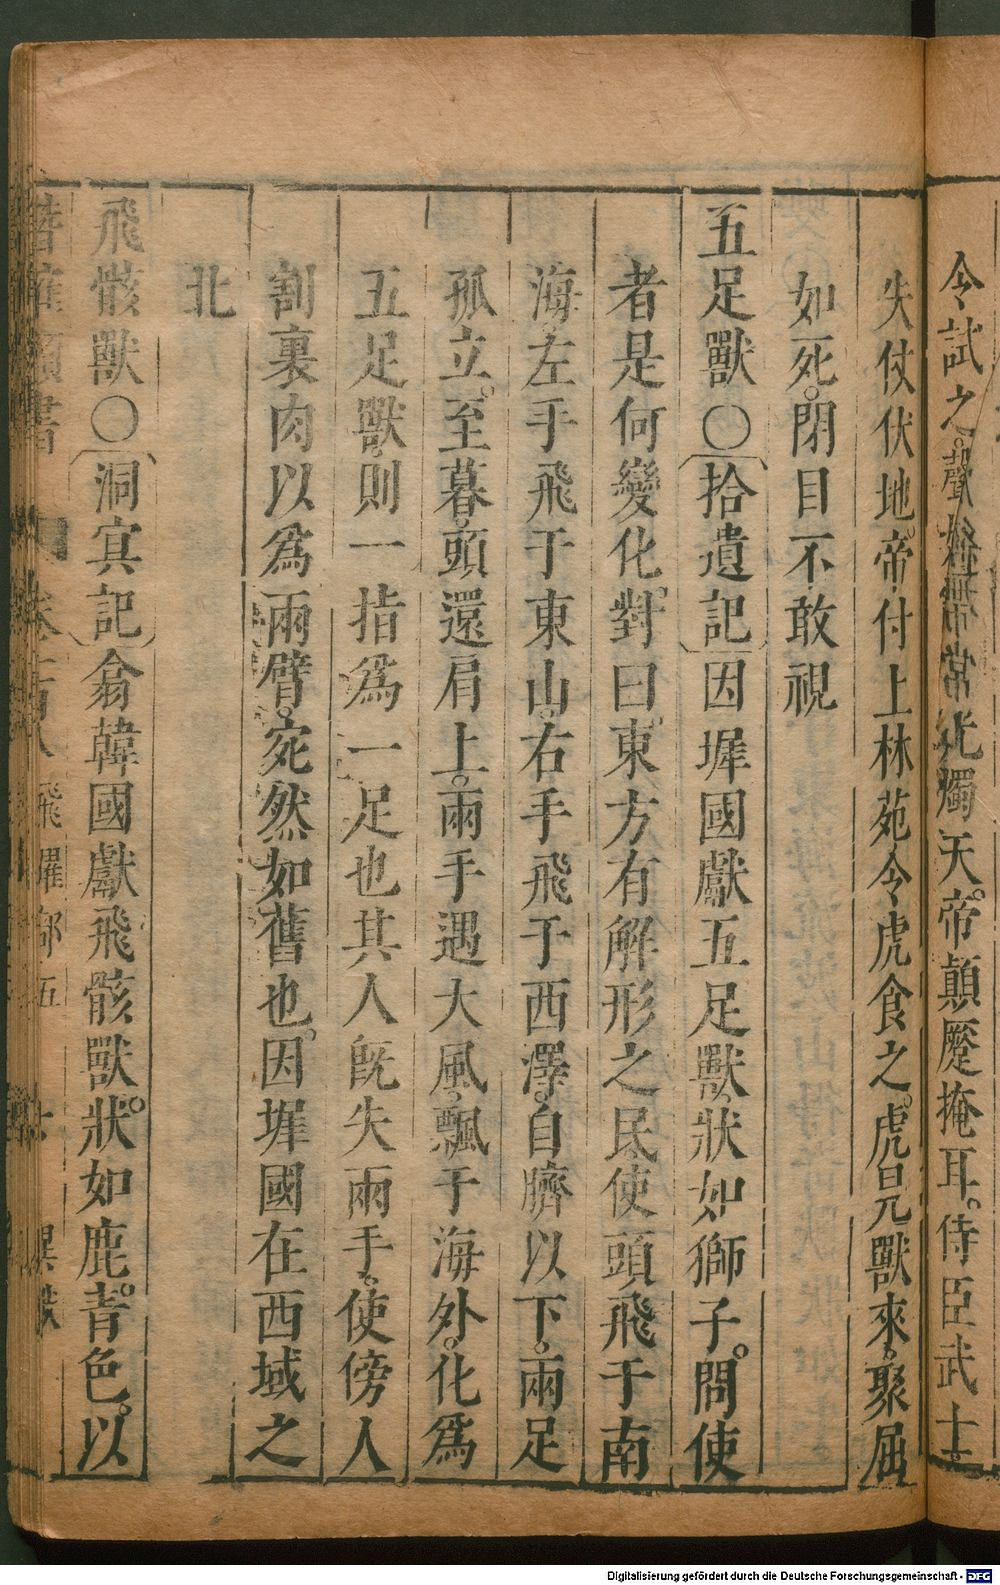 令試之。聲
天。帝顛蹷掩耳。侍臣武士。
失仗伏地。帝付上林苑。令虎食之。虎見獸來。聚屈
如死。閉目不敢視
五足獸〇〔拾遺記〕因墀國獻五足獸。狀如獅子。問使
者是何變化。對曰。東方有解形之民。使頭飛于南
海。左手飛于東山。右手飛于西澤。自臍以下。兩足
孤立。至暮。頭還肩上。兩手遇大風。飄于海外。化爲
五足獸。則一指爲一足也。其人旣失兩手。使傍人
割裏肉以爲兩臂。宛然如舊也。因墀國在西域之
北
飛骸獸〇〔洞冥記〕翕韓國獻飛骸獸。狀如鹿。青色。以
Digitalisierung gefördert durch die Deutsche Forschungsgemeinschaft - DFG